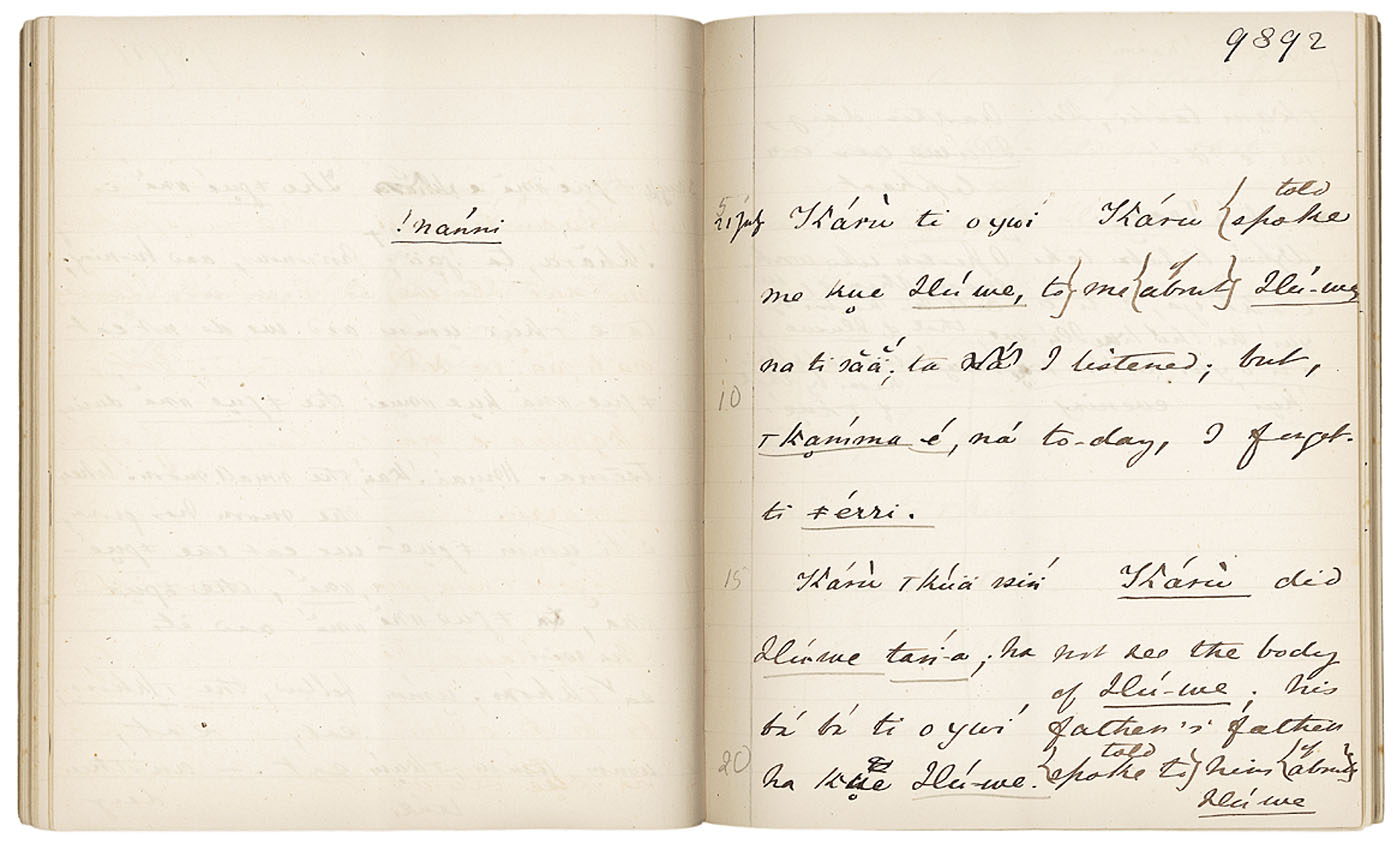 !nánni
9892
5
21 July Káru ti o ywi Káru { told spoke
me kue Ilúwe, to} me {of about} Ilú-we,
na ti sãã; ta I listened; but,
10
Tkamma é, ná to-day, I forget.
ti ǂérri.
15 Káru Tkúä siṅ Káru did
Ilú-we tañ-a; ha not see the body
of Ilú-we; his
bá bá ti o ywi father's father
20 ha kue Ilú-we. {told spoke to} him {of about}
Ilúwe